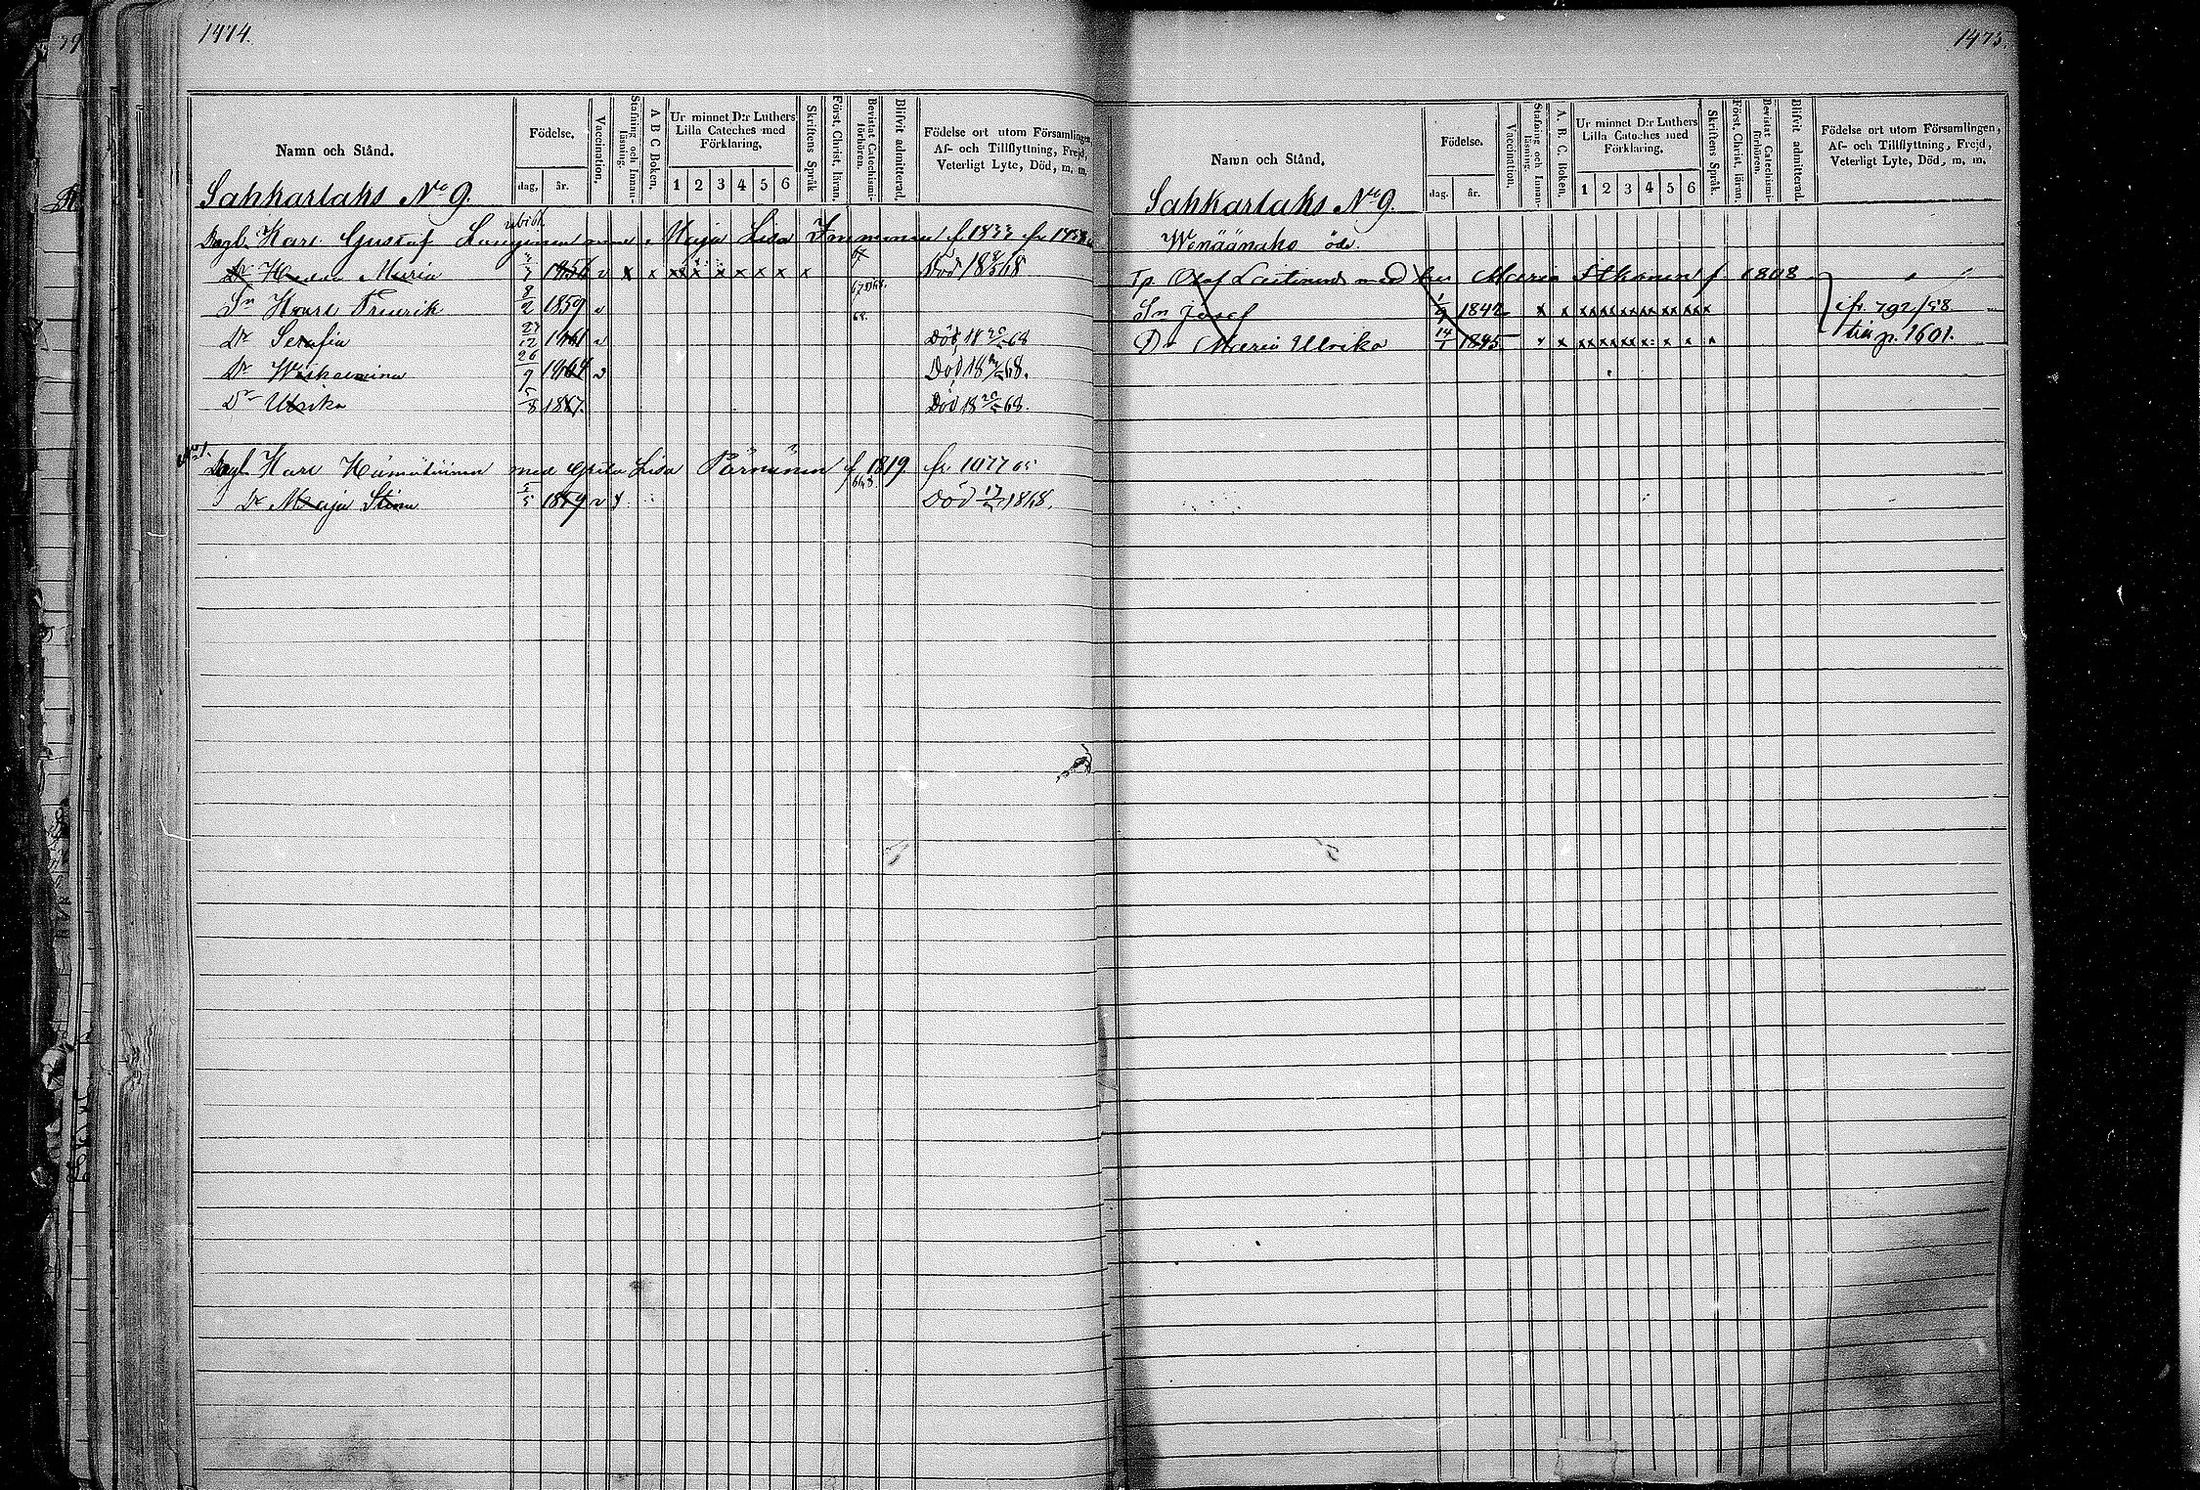 1474.
Namn och Stånd.
Födelse.
dag, år.
Vaccination.
Stafning och Innanläsning.
A B C Boken.
Ur minnet D:r Luthers Lilla Cateches med Förklaring,
1 2 3 4 5 6
Skriftens Språk
Först. Christ. läran.
Bevistat Catechismi-förhören.
Blifvit admitterad.
Födelse ort utom Församlingen, Af- och Tillflyttning, Frejd, Veterligt Lyte, Död, m. m.
Sahkarlaks No 9.
Dagl. Karl Gustaf med Maja Lisa Immonen f. 1833
Dr Hedda Maria 1856 v x x x x x x x x x 67 Död 18 68
Sn Karl Fredrik 8/2 1859 v 68.
Dr Serafia 27/12 1861 v Död 18 68
Dr Wilhelmina 26/9 1864 v Död 18 68.
Dr Ulrika 5/8 1867. Död 18 68.
Dagl. Karl Hämäläinen med Greta Lisa f 1819. fr. 1077
Dr Maja Stina 5/5 1859 v Död 1868.
1475.
Namn och Stånd.
Födelse.
dag. år.
Vaccination.
Stafning och Innanläsning.
A. B. C. Boken.
Ur minnet D:r Luthers Lilla Cateches med Förklaring,
1 2 3 4 5 6
Skriftens Språk.
Först. Christ. läran.
Bevistat Catechismi-förhören.
Blifvit admitterad.
Födelse ort utom Församlingen, Af- och Tillflyttning, Frejd, Veterligt Lyte, Död, m. m.
Sahkarlaks No 9.
Wenäänaho öde.
Tp. Olof Laitinen med hu Maria Ihkonen f. 1808
Sn Josef 1/9 1842 x x x x x x x x x fr. 792/58
Dr Maria Ulrika 14/1 1845 x x x x x x x x x till p. 1601.